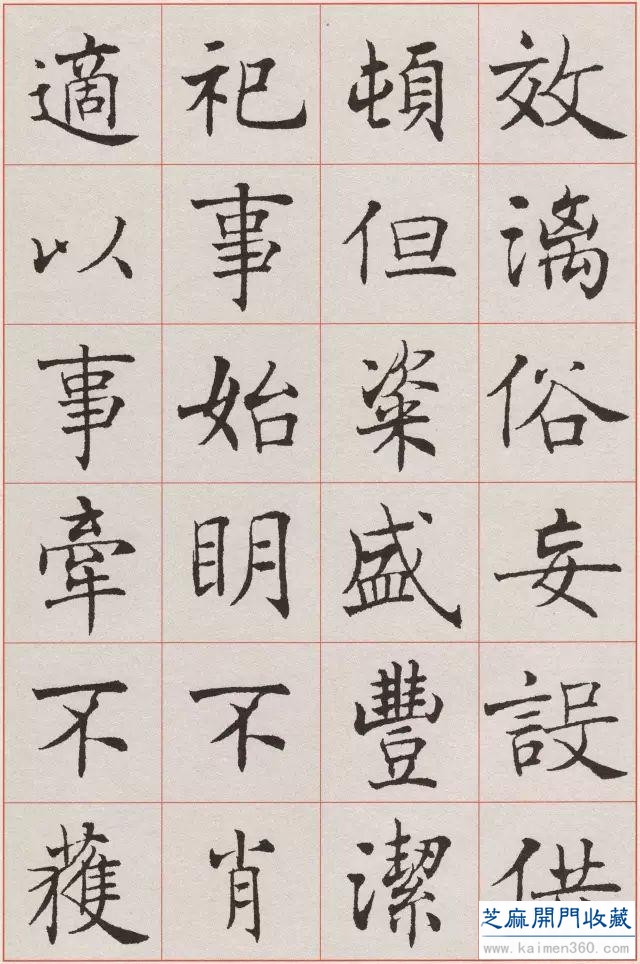 效漓俗妄設供
頓但粢盛豐潔
祀事始明不肖
適以事牽不獲
芝麻開門收藏
www.kaimen360.com